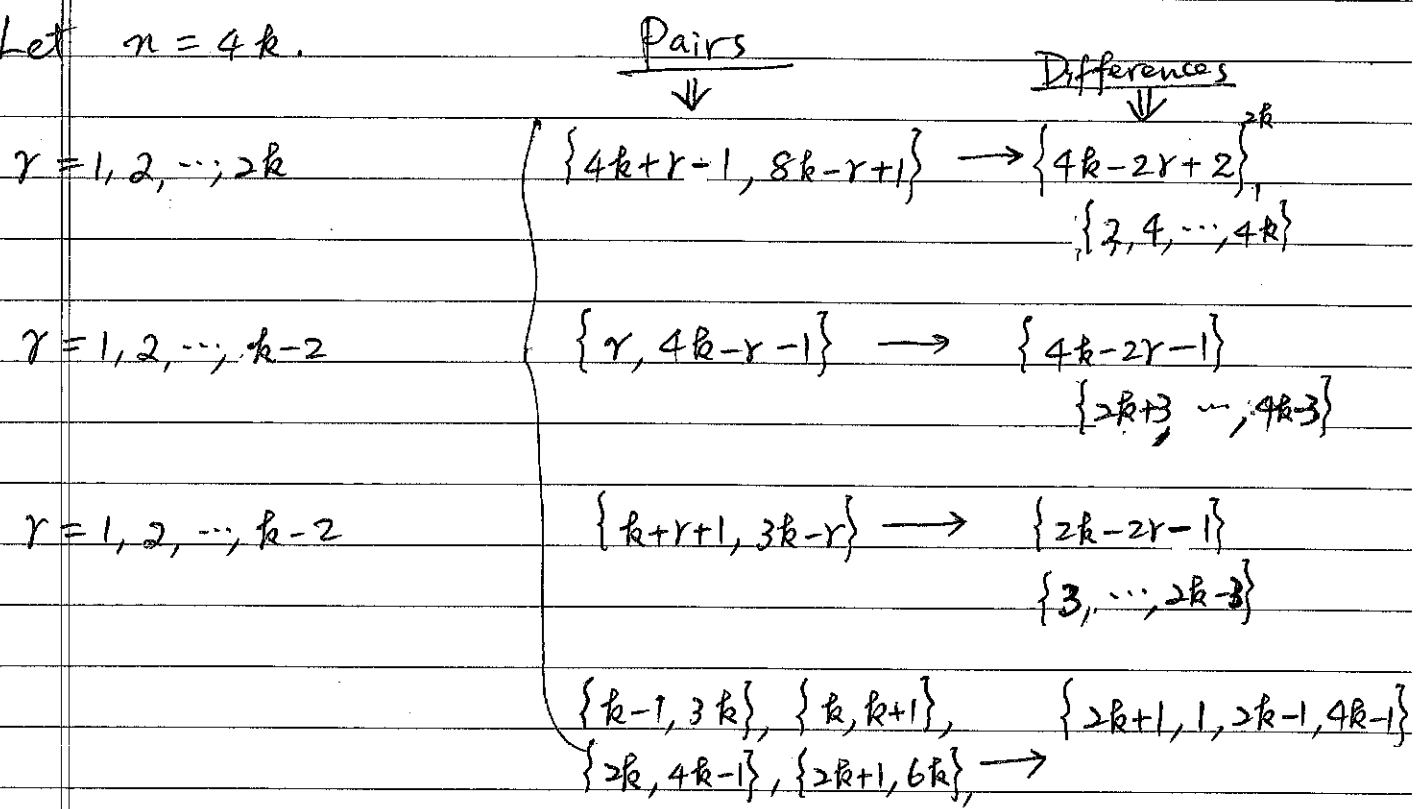 Let n = 4k.
Pairs
Differences
⇓ ⇓
r = 1, 2, ..., 2k {4k+r-1, 8k-r+1} → {4k-2r+2}₁²ᵏ
{2, 4, ..., 4k}
r = 1, 2, ..., k-2 {r, 4k-r-1} → {4k-2r-1}
{2k+3, ..., 4k-3}
r = 1, 2, ..., k-2 {k+r+1, 3k-r} → {2k-2r-1}
{3, ..., 2k-3}
{k-1, 3k}, {k, k+1}, {2k+1, 1, 2k-1, 4k-1}
{2k, 4k-1}, {2k+1, 6k}, →